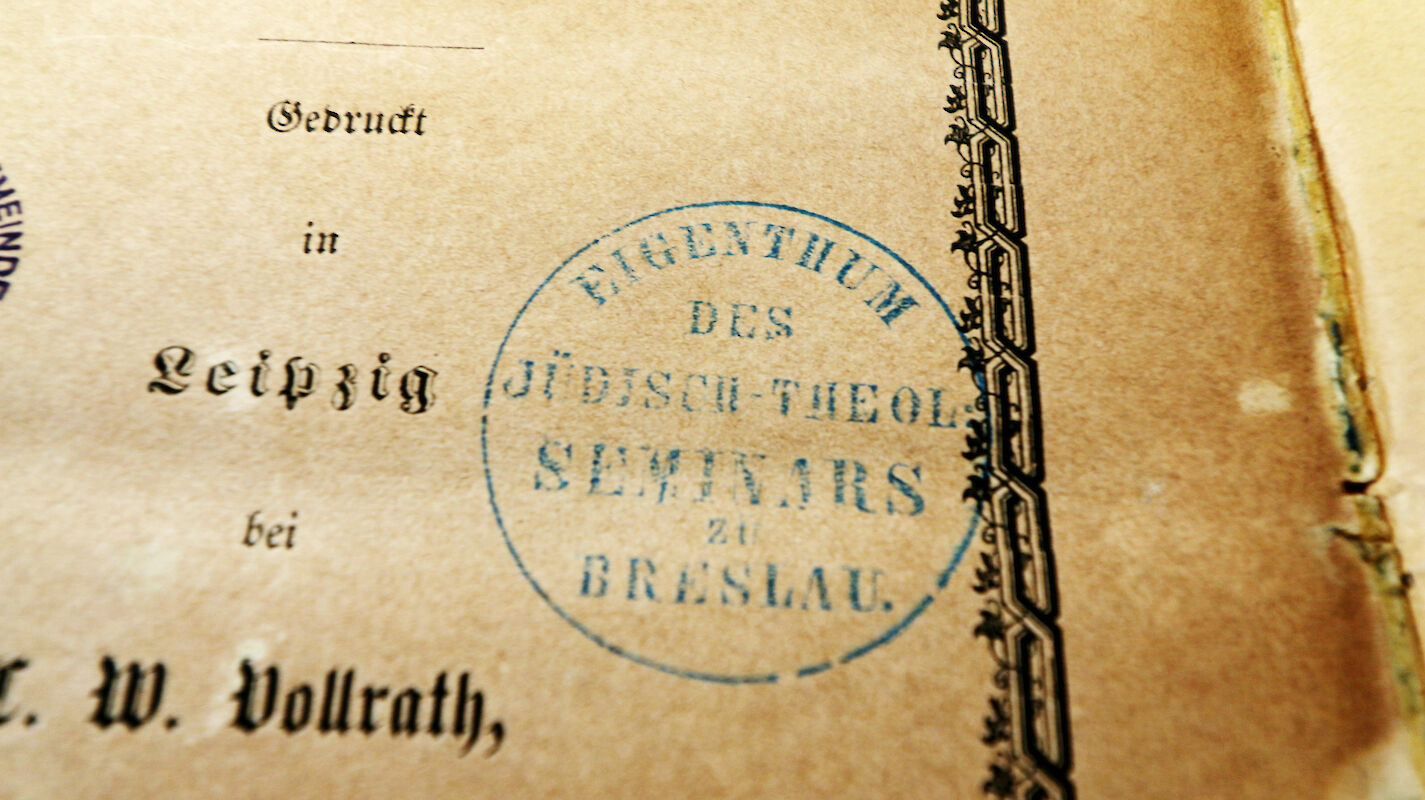 Gedruckt
in
Leipzig
bei
W. Vollrath,
EIGENTHUM
DES
JÜDISCH-THEOL.
SEMINARS
ZU
BRESLAU.